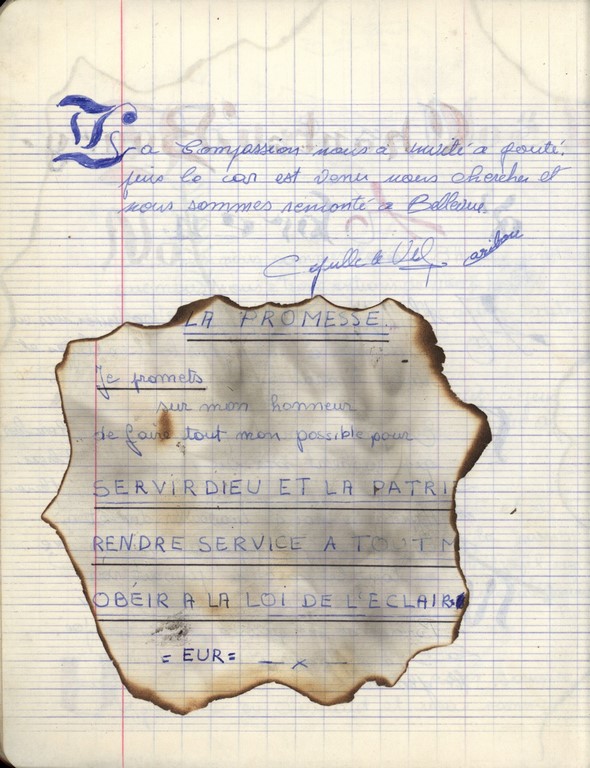 La Compassion nous a invité a gouté.
puis le car est venu nous chercher et
nous sommes remonté a Bellevue.
LA PROMESSE
Je promets
sur mon honneur
de faire tout mon possible pour
SERVIR DIEU ET LA PATRI
RENDRE SERVICE A TOUT M
OBEIR A LA LOI DE L'ECLAIR
= EUR=